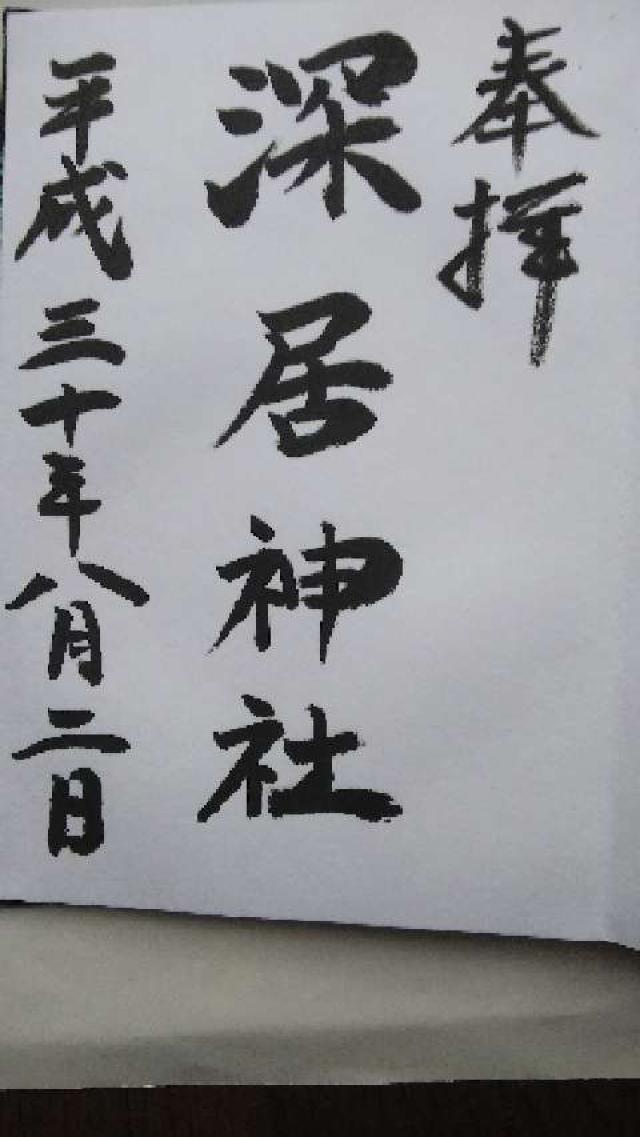 奉拝
深居神社
平成三十年八月二日